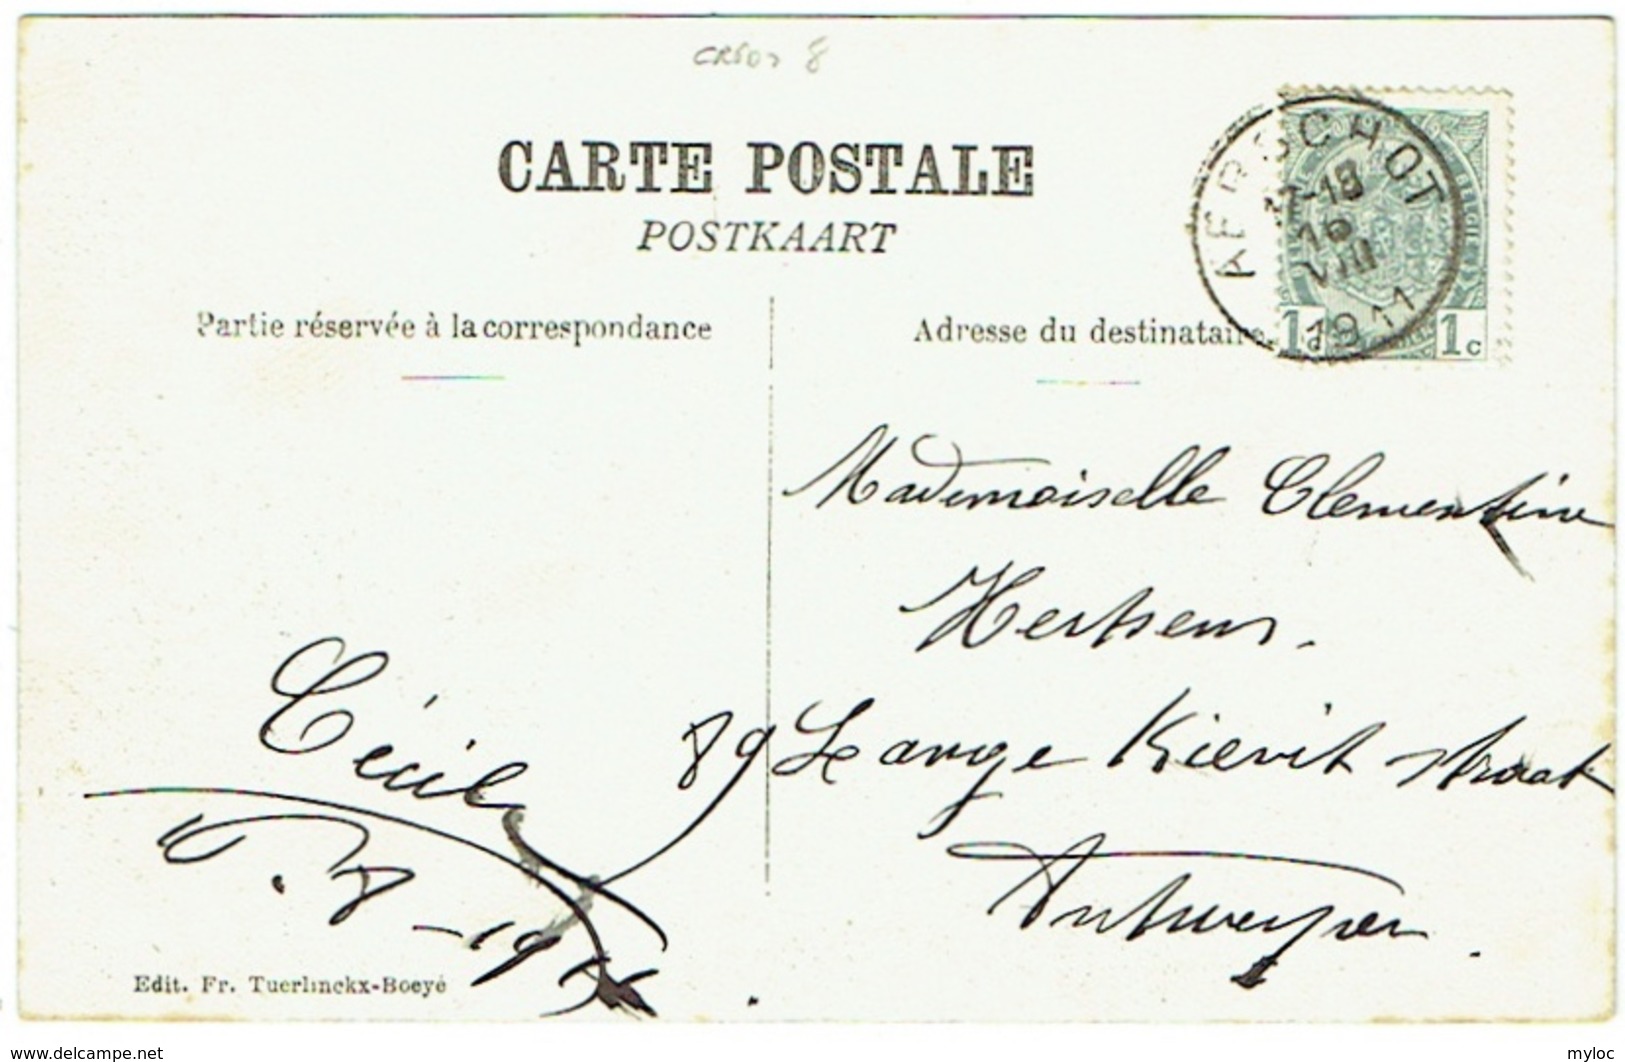 CARTE POSTALE
POSTKAART
Partie réservée à la correspondance
Adresse du destinataire
AERSCHOT
16
VIII
1911
1c 1c
Mademoiselle Clementine
Hertsens.
89 Lange Kievit straat
Antwerpen.
Cécile
Edit. Fr. Tuerlinckx-Boeyé
www.delcampe.net
myloc